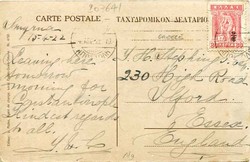 CARTE POSTALE
ΤΑΧΥΔΡΟΜΙΚΟΝ ΔΕΛΤΑΡΙΟΝ
Smyrna
15-6-22
Leaving here
tomorrow
morning for
Constantinople
Kindest regards
to all.
230 High Road
Ilford
Essex
England